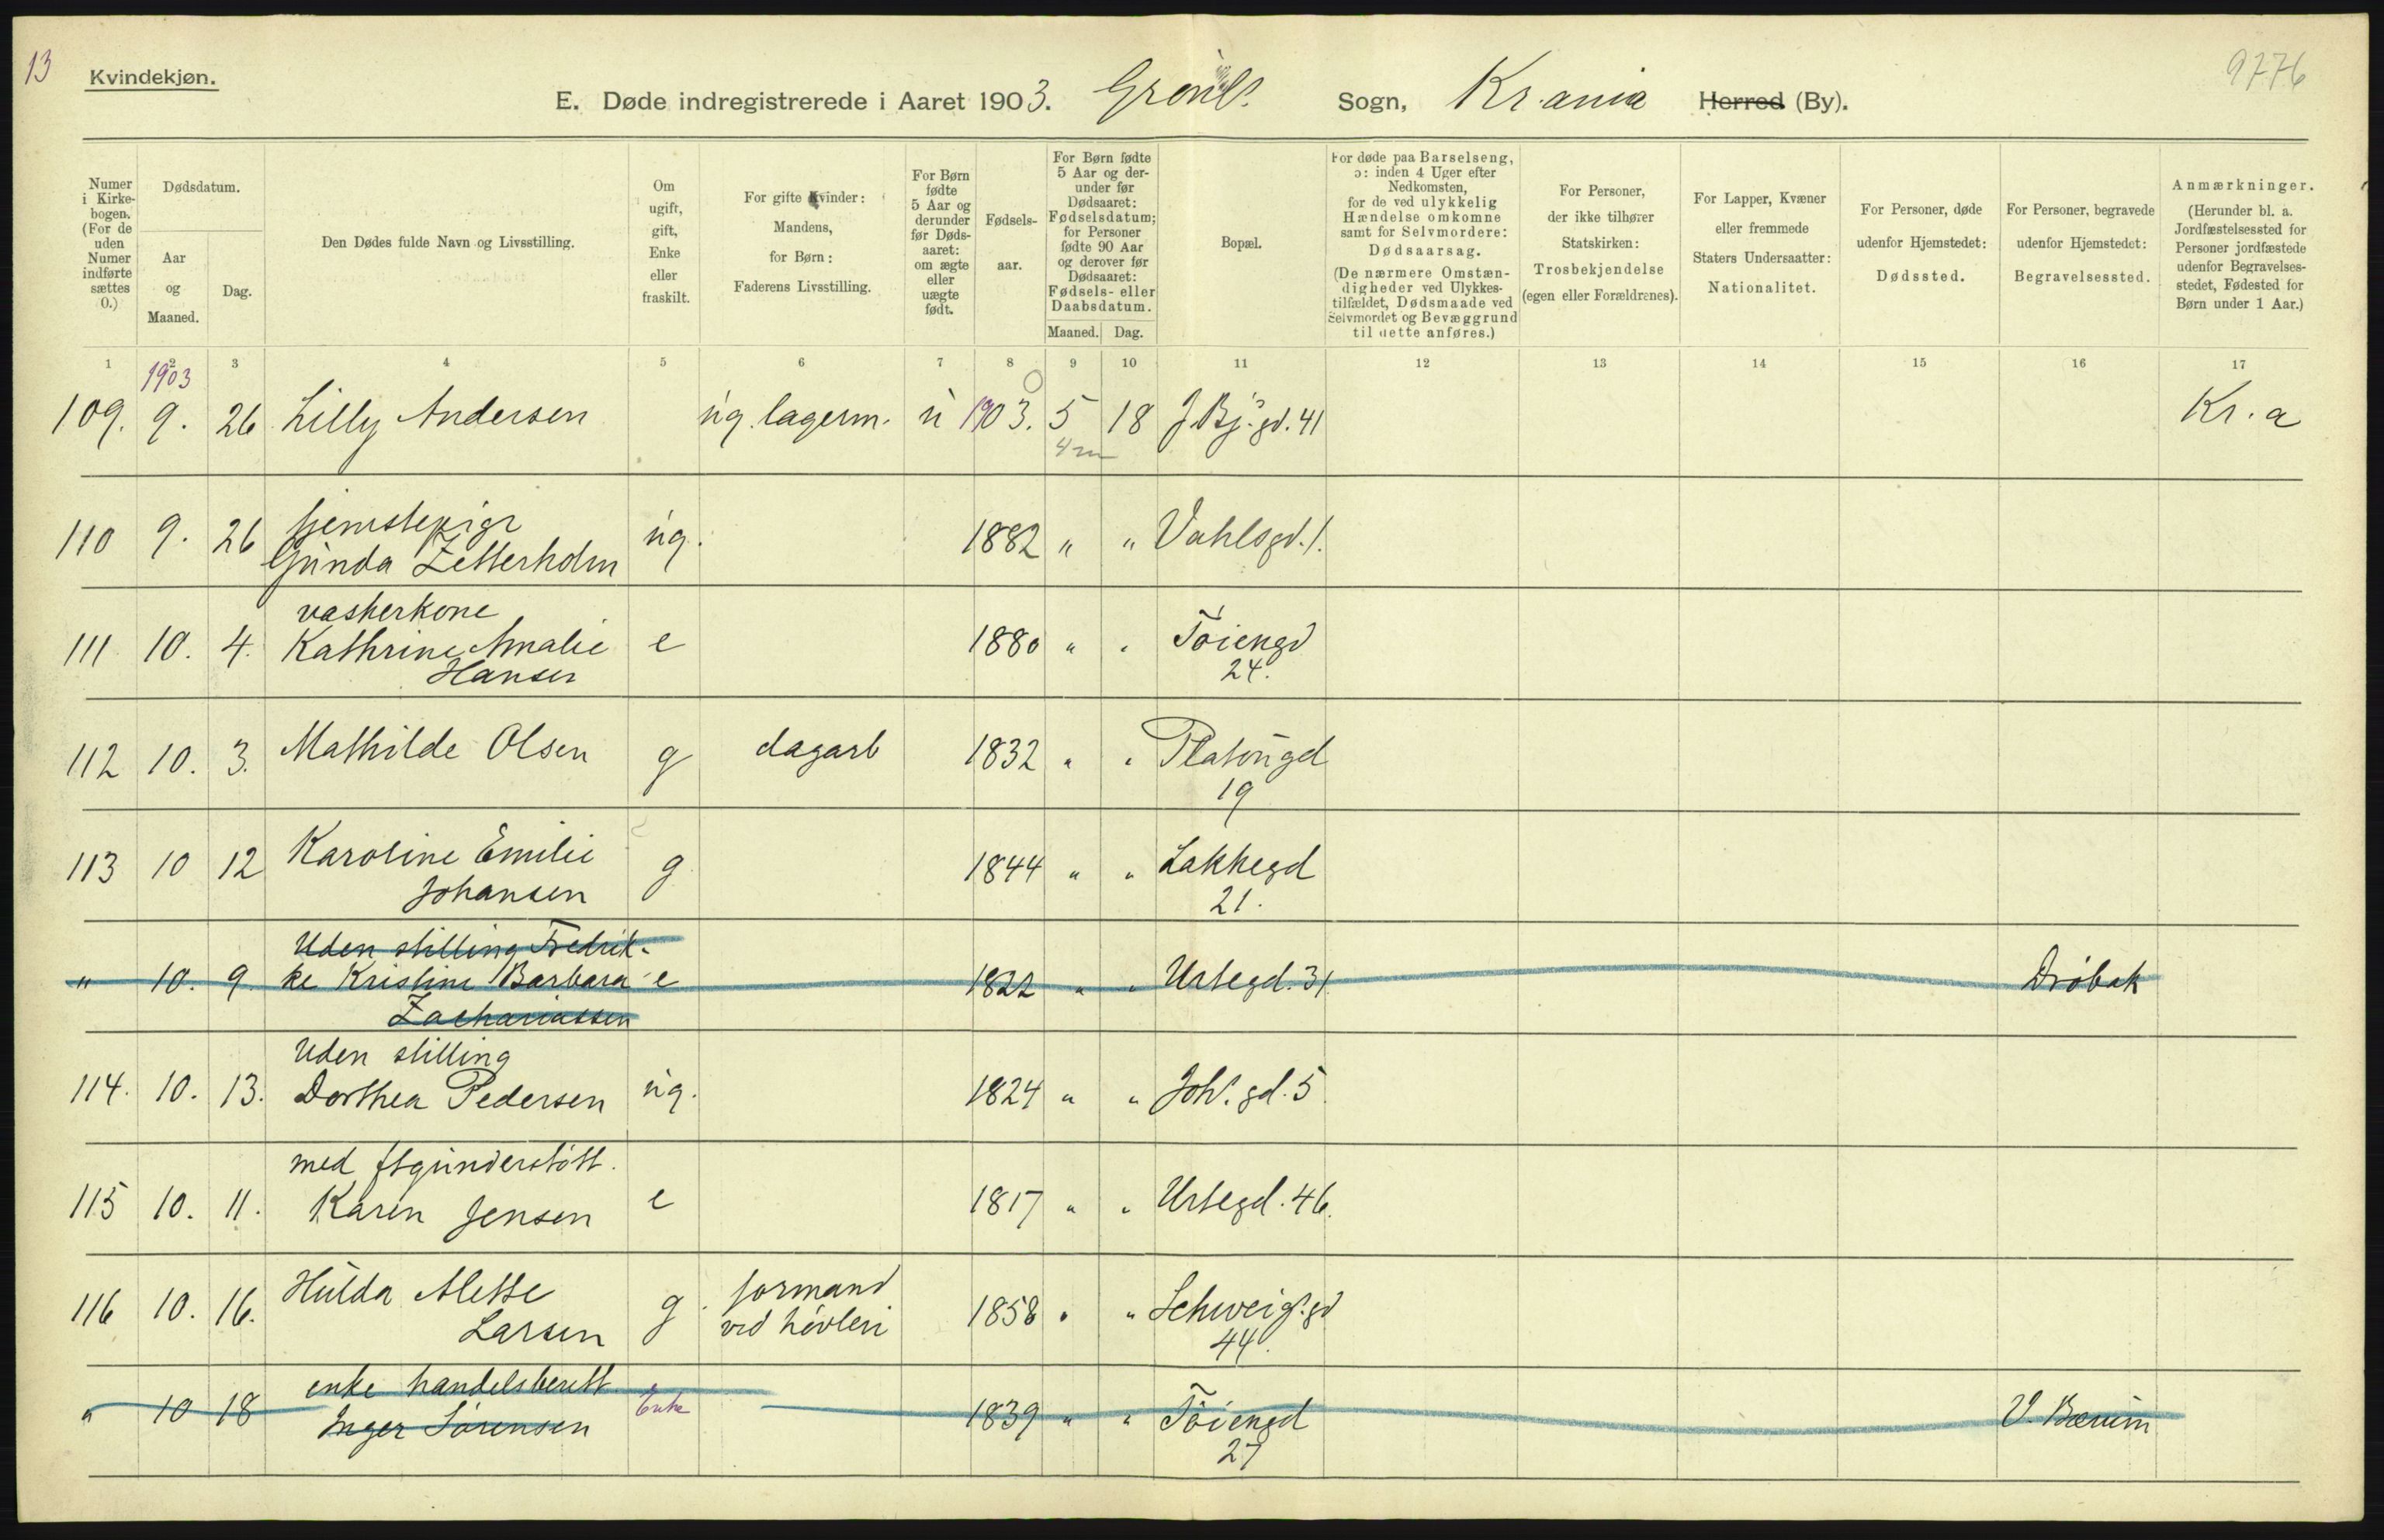 13
Kvindekjøn.
9776
E. Døde indregistrerede i Aaret 1903. Grønl. Sogn, Kr.ania Herred (By).
Numer i Kirke-bogen. (For de uden Numer indførte sættes 0.)
Dødsdatum.
Aar og Maaned.
Dag.
Den Dødes fulde Navn og Livsstilling.
Om ugift, gift, Enke eller fraskilt.
For gifte Kvinder: Mandens, for Børn: Faderens Livsstilling.
For Børn fødte 5 Aar og derunder før Døds-aaret: om ægte eller uægte født.
Fødsels-aar.
For Børn fødte 5 Aar og der-under før Dødsaaret: Fødselsdatum; for Personer fødte 90 Aar og derover før Dødsaaret: Fødsels- eller Daabsdatum.
Maaned. Dag.
Bopæl.
For døde paa Barselseng, ɔ: inden 4 Uger efter Nedkomsten, for de ved ulykkelig Hændelse omkomne samt for Selvmordere: Dødsaarsag. (De nærmere Omstæn-digheder ved Ulykkes-tilfældet, Dødsmaade ved Selvmordet og Bevæggrund til dette anføres.)
For Personer, der ikke tilhører Statskirken: Trosbekjendelse (egen eller Forældrenes).
For Lapper, Kvæner eller fremmede Staters Undersaatter: Nationalitet.
For Personer, døde udenfor Hjemstedet: Dødssted.
For Personer, begravede udenfor Hjemstedet: Begravelsessted.
Anmærkninger. (Herunder bl. a. Jordfæstelsessted for Personer jordfæstede udenfor Begravelses-stedet, Fødested for Børn under 1 Aar.)
1 2 3 4 5 6 7 8 9 10 11 12 13 14 15 16 17
1903
109. 9. 26 Lilly Andersen ug. lagerm. u 1903. 5 18 J. Bj. gd. 41 Kr. a
4 m
tjenstepige
110 9. 26 Gunda Zetterholm ug. 1882 " " Vahlsgd. 1.
vaskerkone
111 10. 4. Kathrine Amalie e 1880 " " Tøiengd
Hansen 24.
112 10. 3. Mathilde Olsen g dagarb 1832 " " Platougd
19
113 10 12 Karoline Emilie g 1844 " " Lakkegd
Johansen 21.
Uden stilling Fredrik-
" 10. 9 ke Kristine Barbara e 1822 " " Urtegd. 31 Drøbak
Zachariassen
Uden stilling
114. 10. 13. Dorthea Pedersen ug. 1824 " " Joh. gd. 5
med ftgunderstøtt.
115 10. 11. Karen Jensen e 1817 " " Urtegd. 46.
116 10. 16. Hulda Alette g. formand 1858 " " Schweig. gd
Larsen ved høvleri 44.
enke handelsberett
" 10 18 Inger Sørensen Enke 1839 " " Tøiengd V. Bærum
27